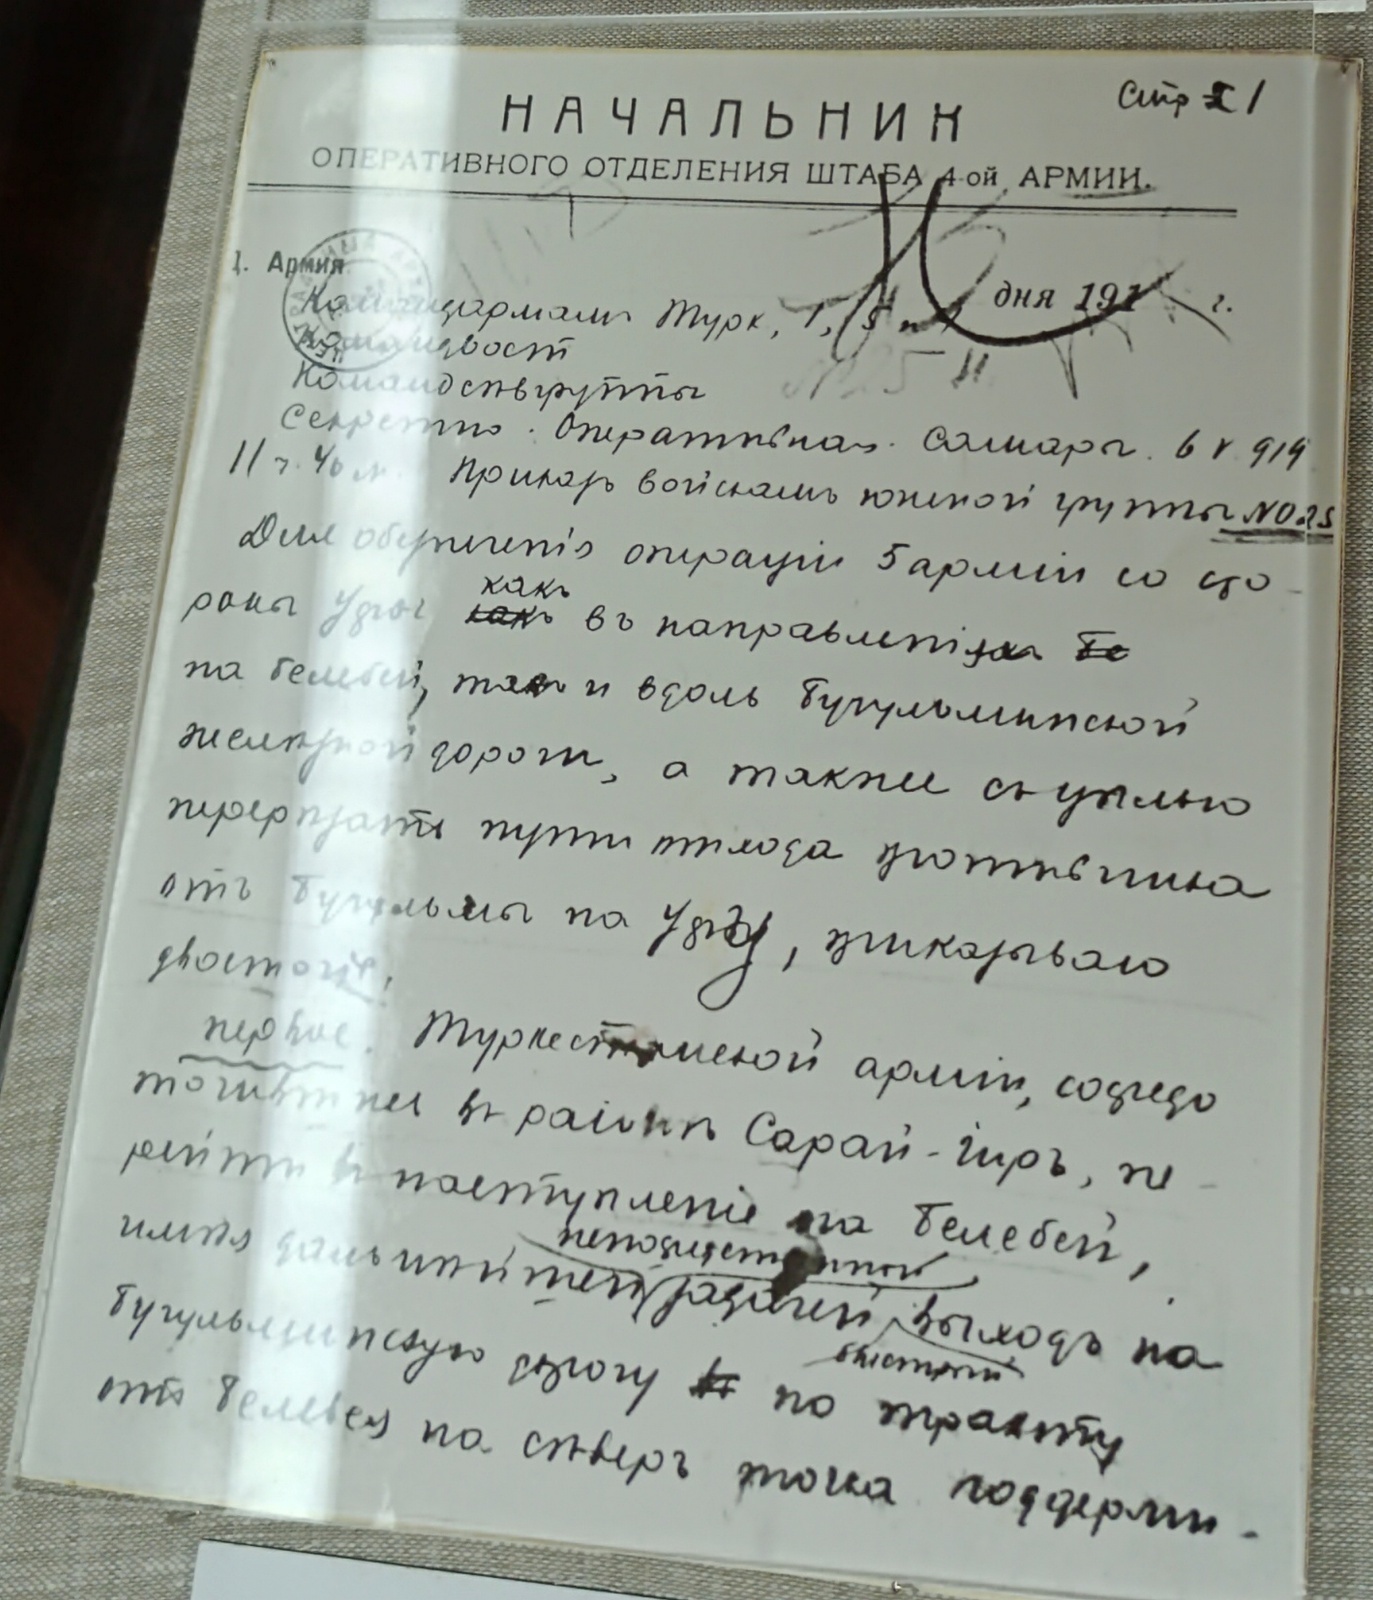 Стр 1
НАЧАЛЬНИК
ОПЕРАТИВНОГО ОТДЕЛЕНИЯ ШТАБА 4-ой АРМИИ.
Д. Армия.
дня 191 г.
Командармамъ Турк, 1, 5 и
Командсѣвгруппы
Секретно. Оперативная. Самара. 6 V 919
11 ч. 40 м. Приказъ войскамъ южной группы №025
Для обезпеченія операціи 5 арміи со сто-
роны Уфы какъ въ направленіи
на Белебей, такъ и вдоль Бугульминской
желѣзной дороги, а также съ цѣлью
перерѣзать пути отхода противника
отъ Бугульмы на Уфу, приказываю
двоеточіе:
первое. Туркестанской арміи, сосредо
точившись въ районѣ Сарай-Гиръ, пе-
рейти въ наступленіе на Белебей,
непосредственной
имѣя дальнѣйшей задачей выходъ на
быстрый
Бугульминскую дорогу по тракту
отъ Белебея на сѣверъ точка поддержи-